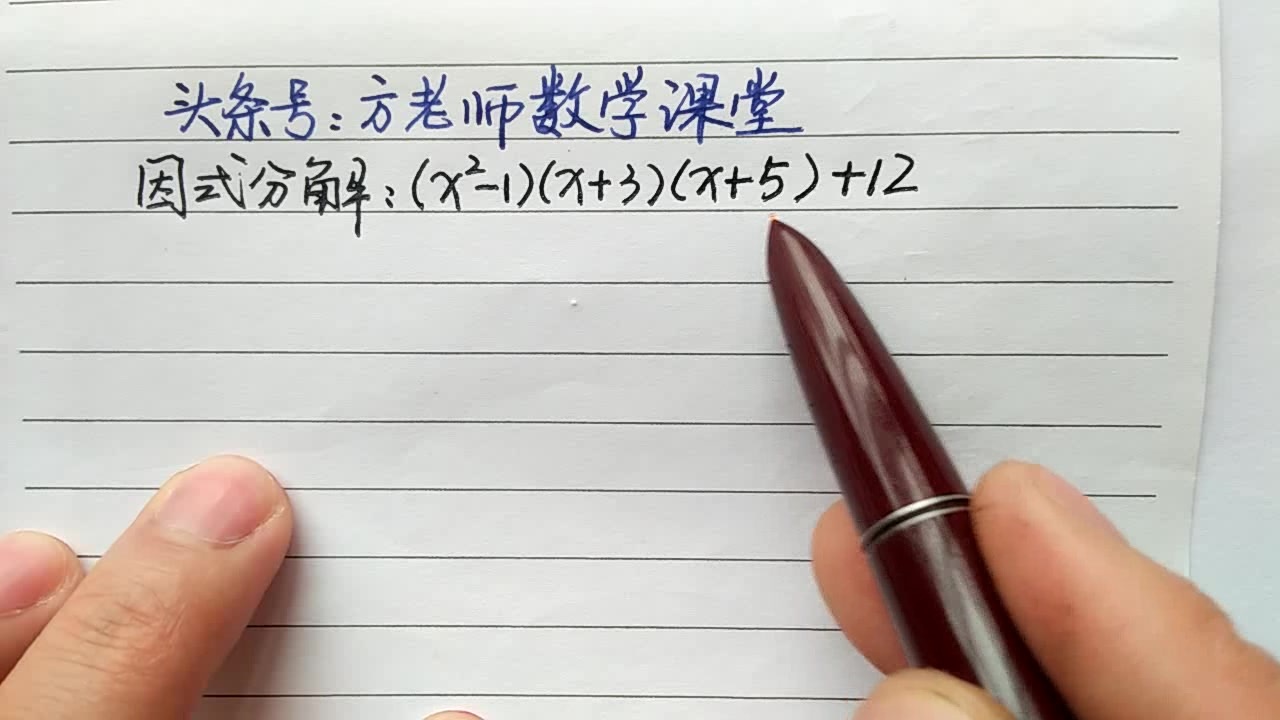 头条号:方老师数学课堂
因式分解:(x²-1)(x+3)(x+5)+12